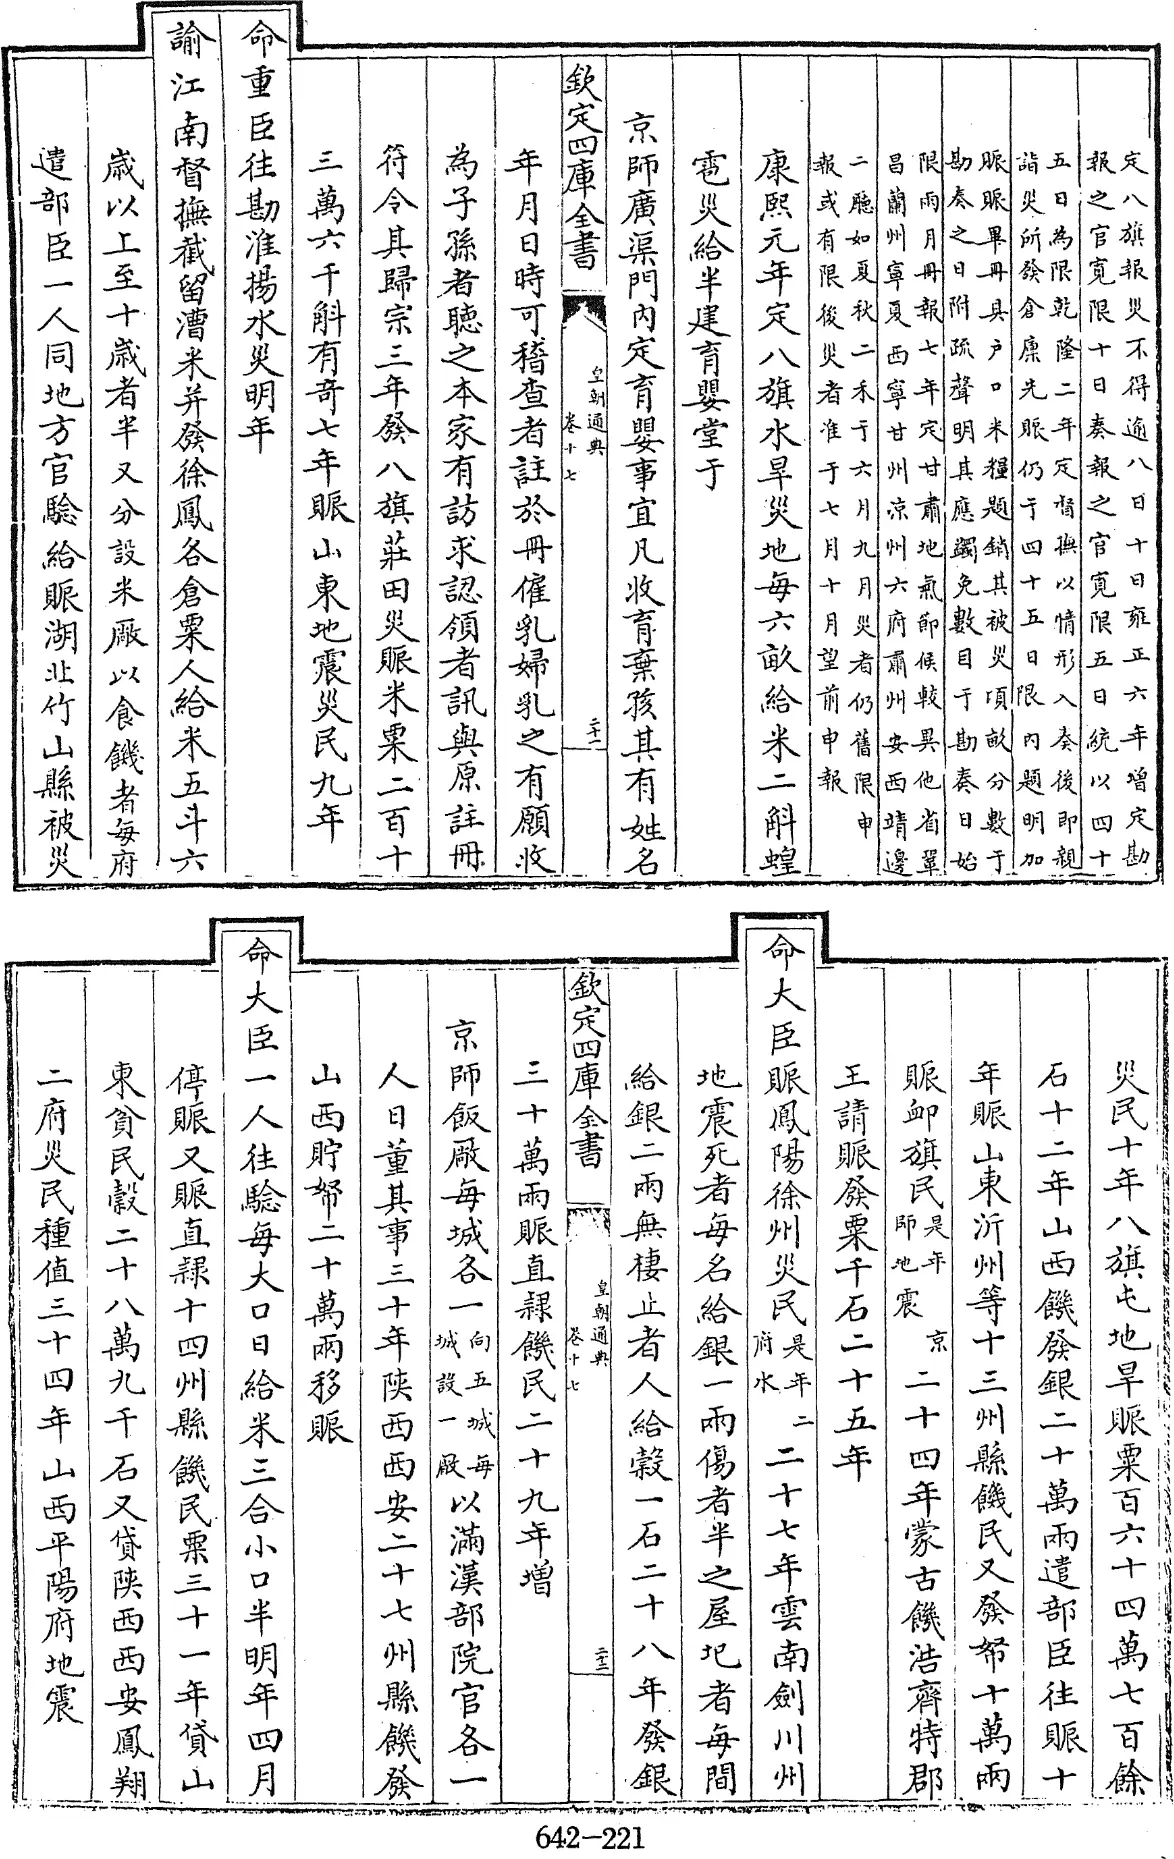 定八旗報災不得逾八日十日雍正六年增定勘
報之官寬限十日奏報之官寬限五日統以四十
五日為限乾隆二年定督撫以情形入奏後即親
詣災所發倉廩先賑仍于四十五日限内題明加
賑賑畢冊具户口米糧題銷其被災頃畝分數于
勘奏之日附疏聲明其應蠲免數目于勘奏日始
限兩月冊報七年定甘肅地氣節候較異他省鞏
昌蘭州寧夏西寧甘州凉州六府肅州安西靖邊
二聽如夏秋二禾于六月九月災者仍舊限申
報或有限後災者准于七月十月望前申報
康熙元年定八旗水旱災地每六畝給米二斛蝗
雹災給半建育嬰堂于
京師廣渠門内定育嬰事宜凡收育棄孩其有姓名
欽定四庫全書 皇朝通典 卷十七 二十一
年月日時可稽查者註於冊僱乳婦乳之有願收
為子孫者聽之本家有訪求認領者訊與原註冊
符令其歸宗三年發八旗莊田災賑米粟二百十
三萬六千斛有竒七年賑山東地震災民九年
命重臣往勘淮揚水災明年
諭江南督撫截留漕米并發徐鳳各倉粟人給米五斗六
歲以上至十歲者半又分設米厰以食饑者每府
遣部臣一人同地方官驗給賑湖北竹山縣被災
災民十年八旗屯地旱賑粟百六十四萬七百餘
石十二年山西饑發銀二十萬兩遣部臣往賑十
年賑山東沂州等十三州縣饑民又發帑十萬兩
賑卹旗民是年京師地震二十四年蒙古饑浩齊特郡
王請賑發粟千石二十五年
命大臣賑鳳陽徐州災民是年二府水二十七年雲南劍川州
地震死者每名給銀一兩傷者半之屋圮者每間
給銀二兩無棲止者人給榖一石二十八年發銀
欽定四庫全書 皇朝通典 卷十七 二十二
三十萬兩賑直隸饑民二十九年增
京師飯厰每城各一向五城每城設一厰以滿漢部院官各一
人日董其事三十年陝西西安二十七州縣饑發
山西貯帑二十萬兩移賑
命大臣一人往驗每大口日給米三合小口半明年四月
停賑又賑直隸十四州縣饑民粟三十一年貸山
東貧民榖二十八萬九千石又貸陝西西安鳳翔
二府災民種值三十四年山西平陽府地震
642-221